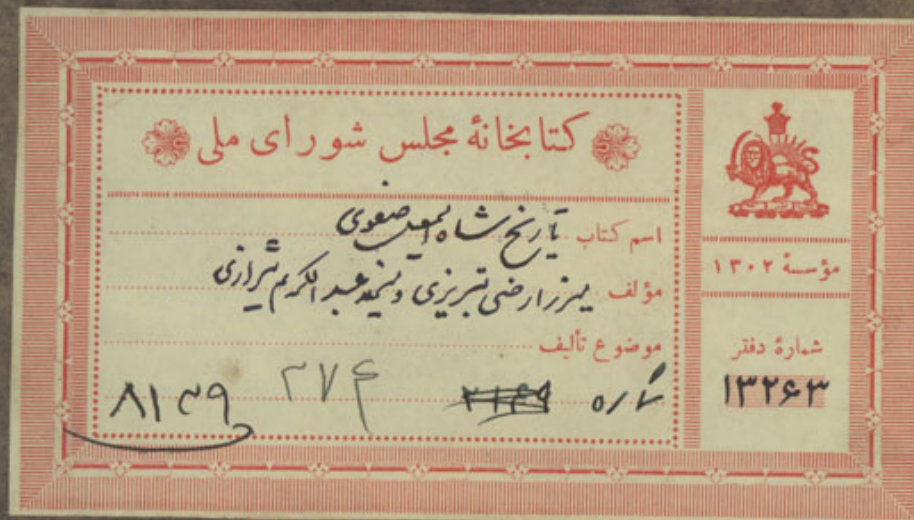 کتابخانهٔ مجلس شورای ملی
اسم کتاب تاریخ شاه اسمعیل صفوی
مؤلف میرزا رضی تبریزی و عبدالکریم شیرازی
موضوع تألیف
شماره ۸۱۳۹
۲۷۴
مؤسسهٔ ۱۳۰۲
شمارهٔ دفتر
۱۳۲۶۳